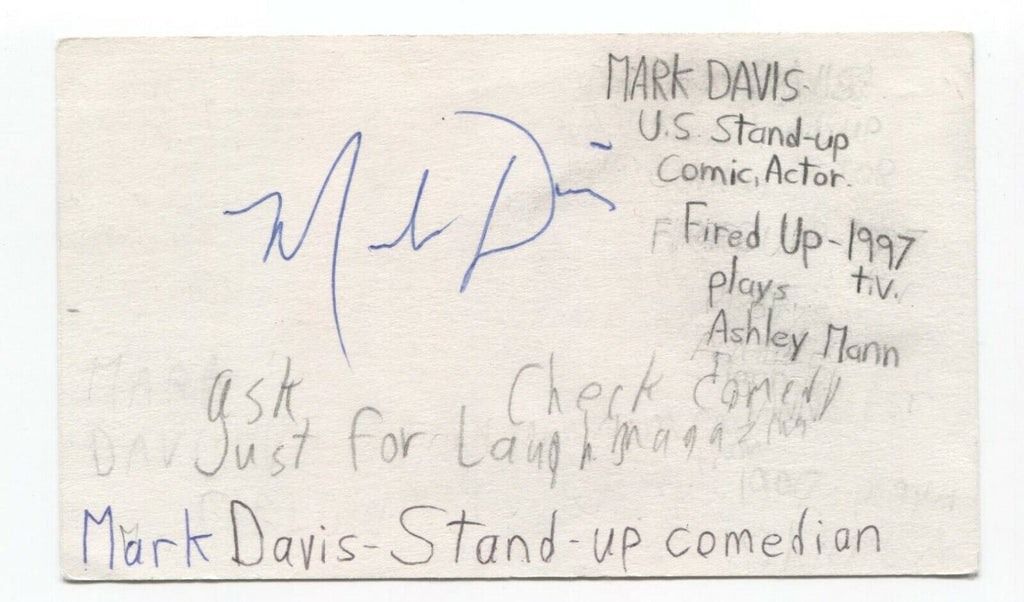 MARK DAVIS
U.S. Stand-up
Comic, Actor.
Fired Up - 1997
plays t.v.
Ashley Mann
Mark Davis
ask Check Comedy
Just for Laugh magazine
Mark Davis - Stand-up comedian